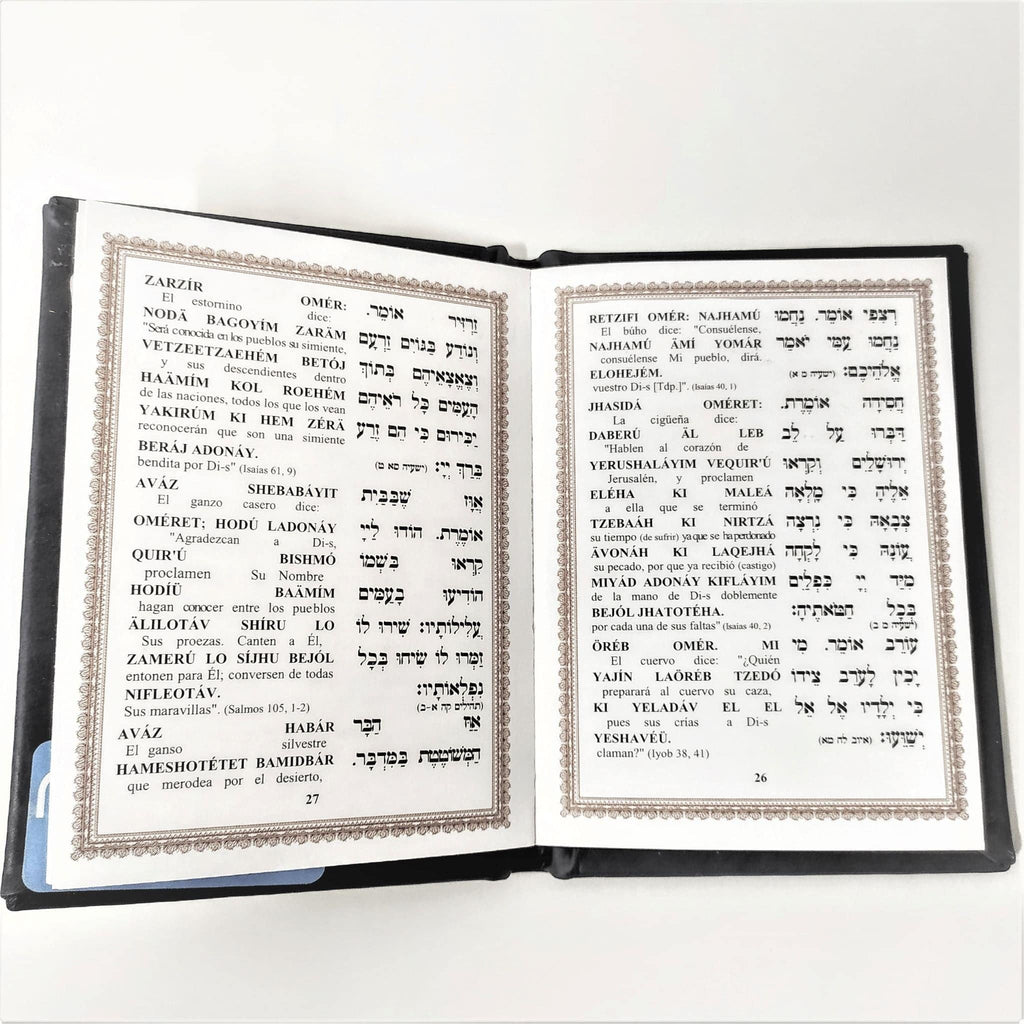 RETZIFI OMÉR: NAJHAMÚ רְצִפִי אוֹמֵר. נַחֲמוּ
El búho dice: "Consuélense,
NAJHAMÚ ÄMÍ YOMÁR נַחֲמוּ עַמִּי יֹאמַר
consuélense Mi pueblo, dirá.
ELOHEJÉM. אֱלֹהֵיכֶם: (ישעיה מ א)
vuestro Di-s [Tdp.]". (Isaías 40, 1)
JHASIDÁ OMÉRET: חֲסִידָה אוֹמֶרֶת.
La cigüeña dice:
DABERÚ ÄL LEB דַּבְּרוּ עַל לֵב
"Hablen al corazón de
YERUSHALÁYIM VEQUIR'Ú יְרוּשָׁלַיִם וְקִרְאוּ
Jerusalén, y proclamen
ELÉHA KI MALEÁ אֵלֶיהָ כִּי מָלְאָה
a ella que se terminó
TZEBAÁH KI NIRTZÁ צְבָאָהּ כִּי נִרְצָה
su tiempo (de sufrir) ya que se ha perdonado
ÄVONÁH KI LAQEJHÁ עֲוֹנָהּ כִּי לָקְחָה
su pecado, por que ya recibió (castigo)
MIYÁD ADONÁY KIFLÁYIM מִיַּד יְיָ כִּפְלַיִם
de la mano de Di-s doblemente
BEJÓL JHATOTÉHA. בְּכָל חַטֹּאתֶיהָ:
por cada una de sus faltas" (Isaías 40, 2) (ישעיה מ ב)
ÖRÉB OMÉR. MI עוֹרֵב אוֹמֵר. מִי
El cuervo dice: "¿Quién
YAJÍN LAÖRÉB TZEDÓ יָכִין לָעֹרֵב צֵידוֹ
preparará al cuervo su caza,
KI YELADÁV EL EL כִּי יְלָדָיו אֶל אֵל
pues sus crías a Di-s
YESHAVÉÜ. יְשַׁוֵּעוּ: (איוב לח מא)
claman?" (Iyob 38, 41)
26
ZARZÍR OMÉR: זַרְזִיר אוֹמֵר.
El estornino dice:
NODÄ BAGOYÍM ZARÄM וְנוֹדַע בַּגּוֹיִם זַרְעָם
"Será conocida en los pueblos su simiente,
VETZEETZAEHÉM BETÓJ וְצֶאֱצָאֵיהֶם בְּתוֹךְ
y sus descendientes dentro
HAÄMÍM KOL ROEHÉM הָעַמִּים כָּל רֹאֵיהֶם
de las naciones, todos los que los vean
YAKIRÚM KI HEM ZÉRÄ יַכִּירוּם כִּי הֵם זֶרַע
reconocerán que son una simiente
BERÁJ ADONÁY. בֵּרַךְ יְיָ: (ישעיה סא ט)
bendita por Di-s" (Isaías 61, 9)
AVÁZ SHEBABÁYIT אַוָּז שֶׁבַּבַּיִת
El ganzo casero dice:
OMÉRET; HODÚ LADONÁY אוֹמֶרֶת. הוֹדוּ לַיְיָ
"Agradezcan a Di-s,
QUIR'Ú BISHMÓ קִרְאוּ בִּשְׁמוֹ
proclamen Su Nombre
HODÍÜ BAÄMÍM הוֹדִיעוּ בָעַמִּים
hagan conocer entre los pueblos
ÄLILOTÁV SHÍRU LO עֲלִילוֹתָיו: שִׁירוּ לוֹ
Sus proezas. Canten a Él,
ZAMERÚ LO SÍJHU BEJÓL זַמְּרוּ לוֹ שִׂיחוּ בְּכָל
entonen para Él; conversen de todas
NIFLEOTÁV. נִפְלְאוֹתָיו:
Sus maravillas". (Salmos 105, 1-2) (תהילים קה א-ב)
AVÁZ HABÁR אַוַּז הַבָּר
El ganso silvestre
HAMESHOTÉTET BAMIDBÁR הַמְשׁוֹטֶטֶת בַּמִּדְבָּר.
que merodea por el desierto,
27